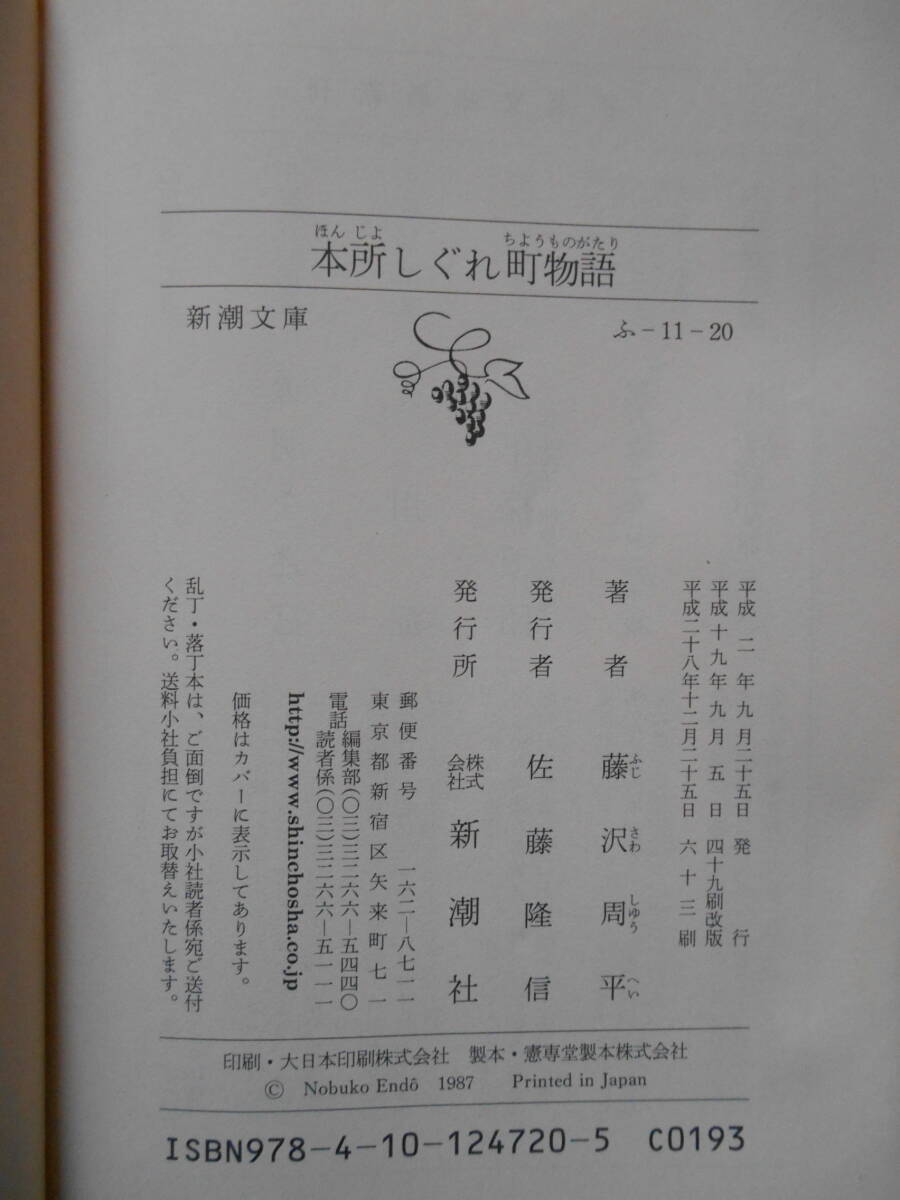 ほんじよ ちようものがたり
本所しぐれ町物語
新潮文庫 ふ-11-20
平成二年九月二十五日 発行
平成十九年九月五日 四十九刷改版
平成二十八年十二月二十五日 六十三刷
著者 藤沢周平
ふじ さわ しゆう へい
発行者 佐藤隆信
発行所 株式会社 新潮社
郵便番号 一六二―八七一一
東京都新宿区矢来町七一
電話 編集部(〇三)三二六六―五四四〇
読者係(〇三)三二六六―五一一一
http://www.shinchosha.co.jp
価格はカバーに表示してあります。
乱丁・落丁本は、ご面倒ですが小社読者係宛ご送付
ください。送料小社負担にてお取替えいたします。
印刷・大日本印刷株式会社 製本・憲専堂製本株式会社
© Nobuko Endô 1987 Printed in Japan
ISBN978-4-10-124720-5 C0193